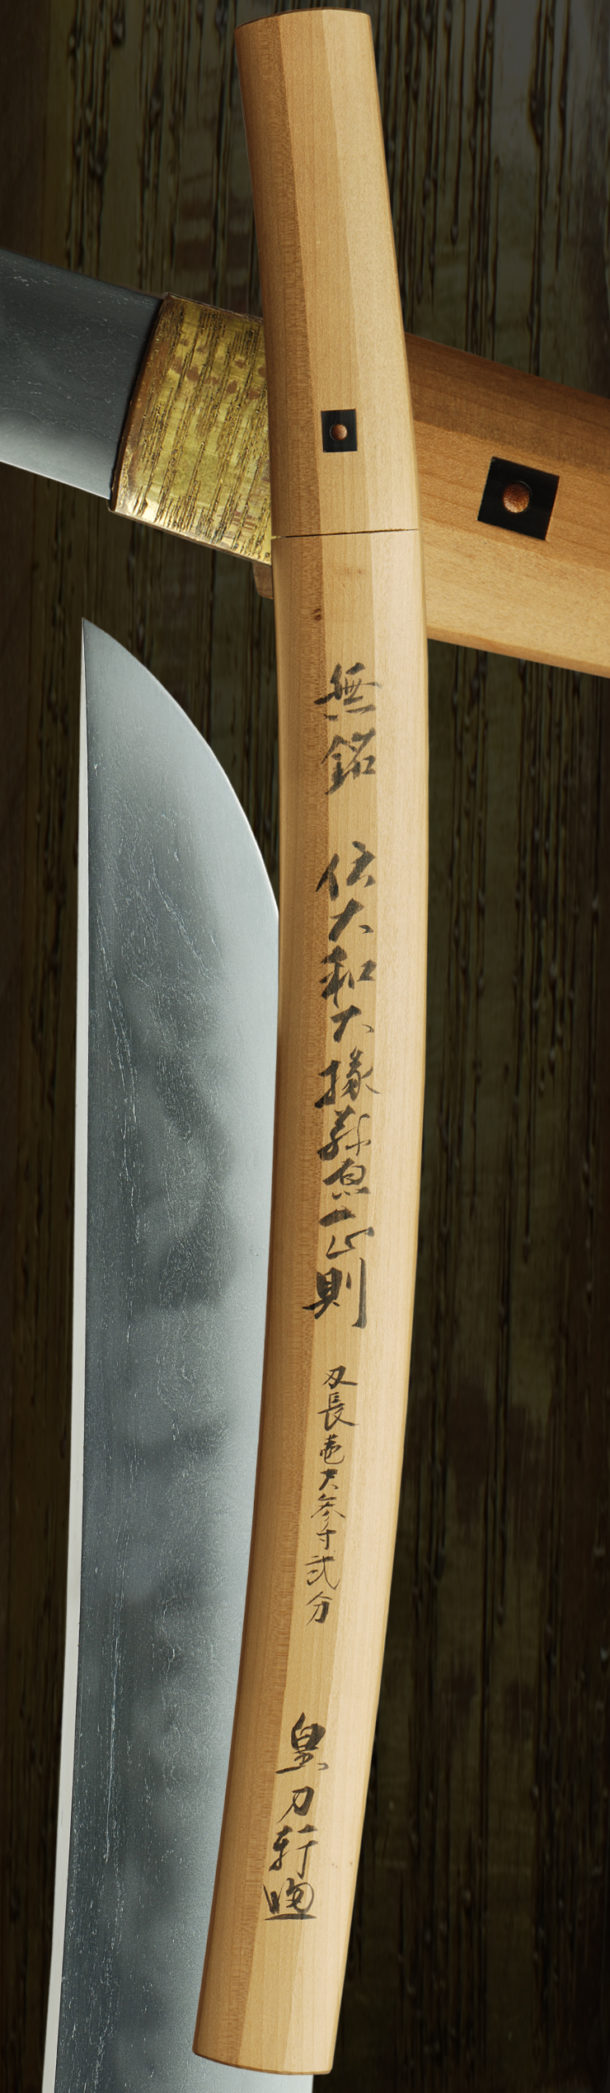 無銘 伝大和大掾藤原正則
刃長壱尺参寸弐分
刀軒